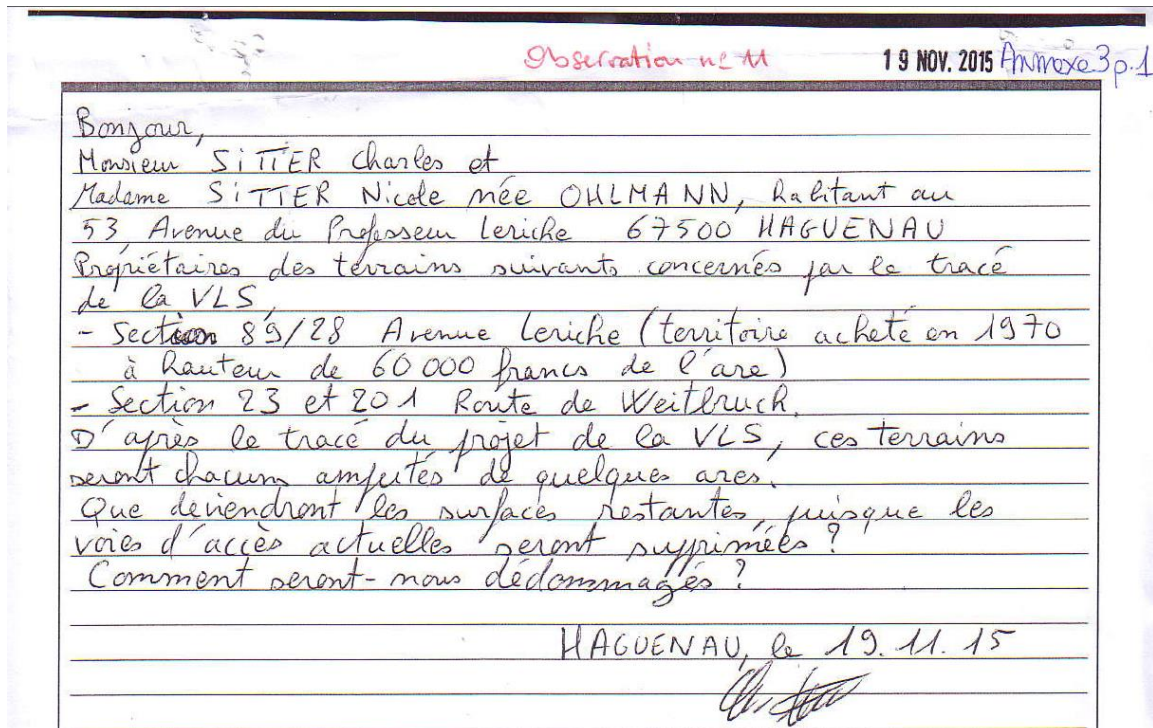 Observation n° 11 19 NOV. 2015 Annexe 3 p.1
Bonjour,
Monsieur SITTER Charles et
Madame SITTER Nicole née OHLMANN, habitant au
53 Avenue du Professeur Leriche 67500 HAGUENAU
Propriétaires des terrains suivants concernés par le tracé
de la VLS,
- Section 89/28 Avenue Leriche (territoire acheté en 1970
à hauteur de 60 000 francs de l'are)
- Section 23 et 201 Route de Weitbruch.
D'après le tracé du projet de la VLS, ces terrains
seront chacuns amputés de quelques ares.
Que deviendront les surfaces restantes, puisque les
voies d'accès actuelles seront supprimées ?
Comment seront-nous dédommagés ?
HAGUENAU, le 19.11.15